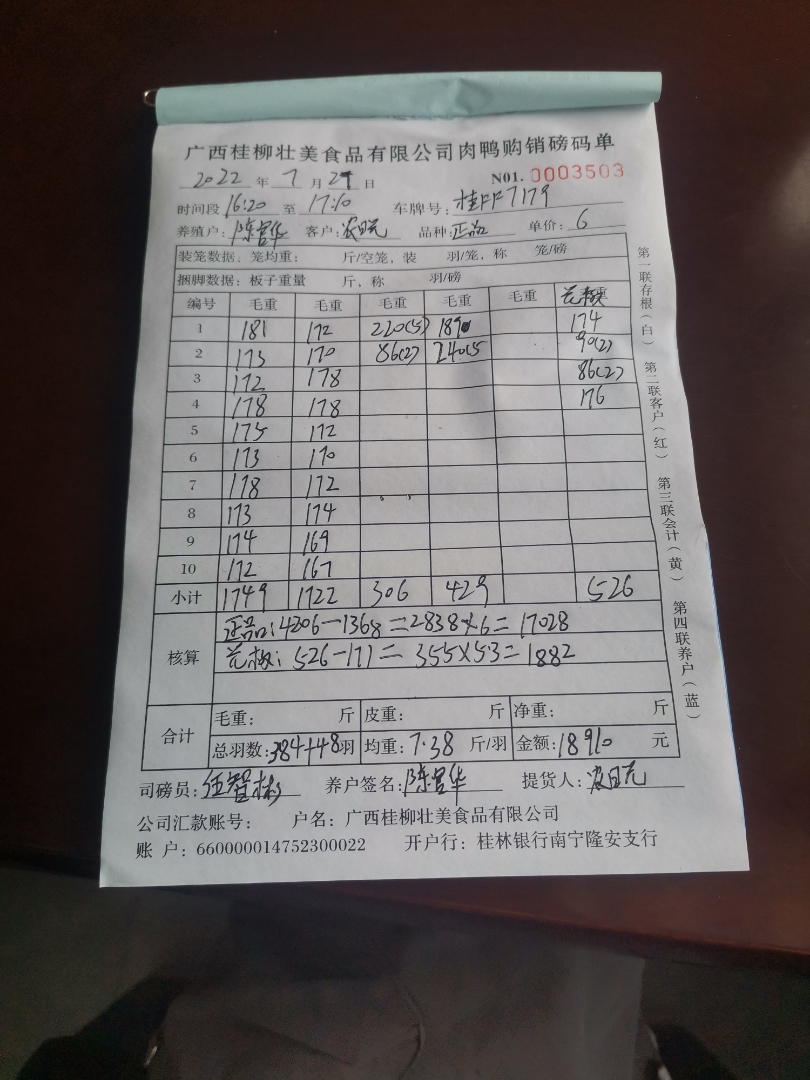 广西桂柳壮美食品有限公司肉鸭购销磅码单
2022 年 7 月 29 日 N01. 0003503
时间段 16:20 至 17:10 车牌号: 桂FF7179
养殖户: 陈官华 客户: 农日元 品种: 正品 单价: 6
装笼数据: 笼均重: 斤/空笼, 装 羽/笼, 称 笼/磅
捆脚数据: 板子重量 斤, 称 羽/磅
编号 毛重 毛重 毛重 毛重 毛重 花板
1 181 172 220(5) 189 174
2 173 170 86(2) 240(5 90(2)
3 172 178 86(2)
4 178 178 176
5 175 172
6 173 170
7 178 172
8 173 174
9 174 169
10 172 167
小计 1749 1722 306 429 526
核算
正品: 4206-1368=2838×6=17028
花板: 526-171=355×5.3=1882
合计
毛重: 斤 皮重: 斤 净重: 斤
总羽数: 384+48 羽 均重: 7.38 斤/羽 金额: 18910 元
司磅员: 伍智彬 养户签名: 陈官华 提货人: 农日元
公司汇款账号: 户名: 广西桂柳壮美食品有限公司
账 户: 660000014752300022 开户行: 桂林银行南宁隆安支行
第一联存根(白) 第二联客户(红) 第三联会计(黄) 第四联养户(蓝)